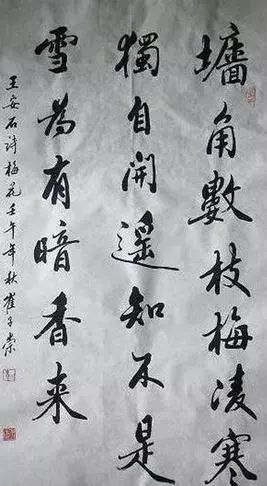 墻角數枝梅凌寒
獨自開遥知不是
雪為有暗香来
王安石詩梅花壬午年秋崔子崇